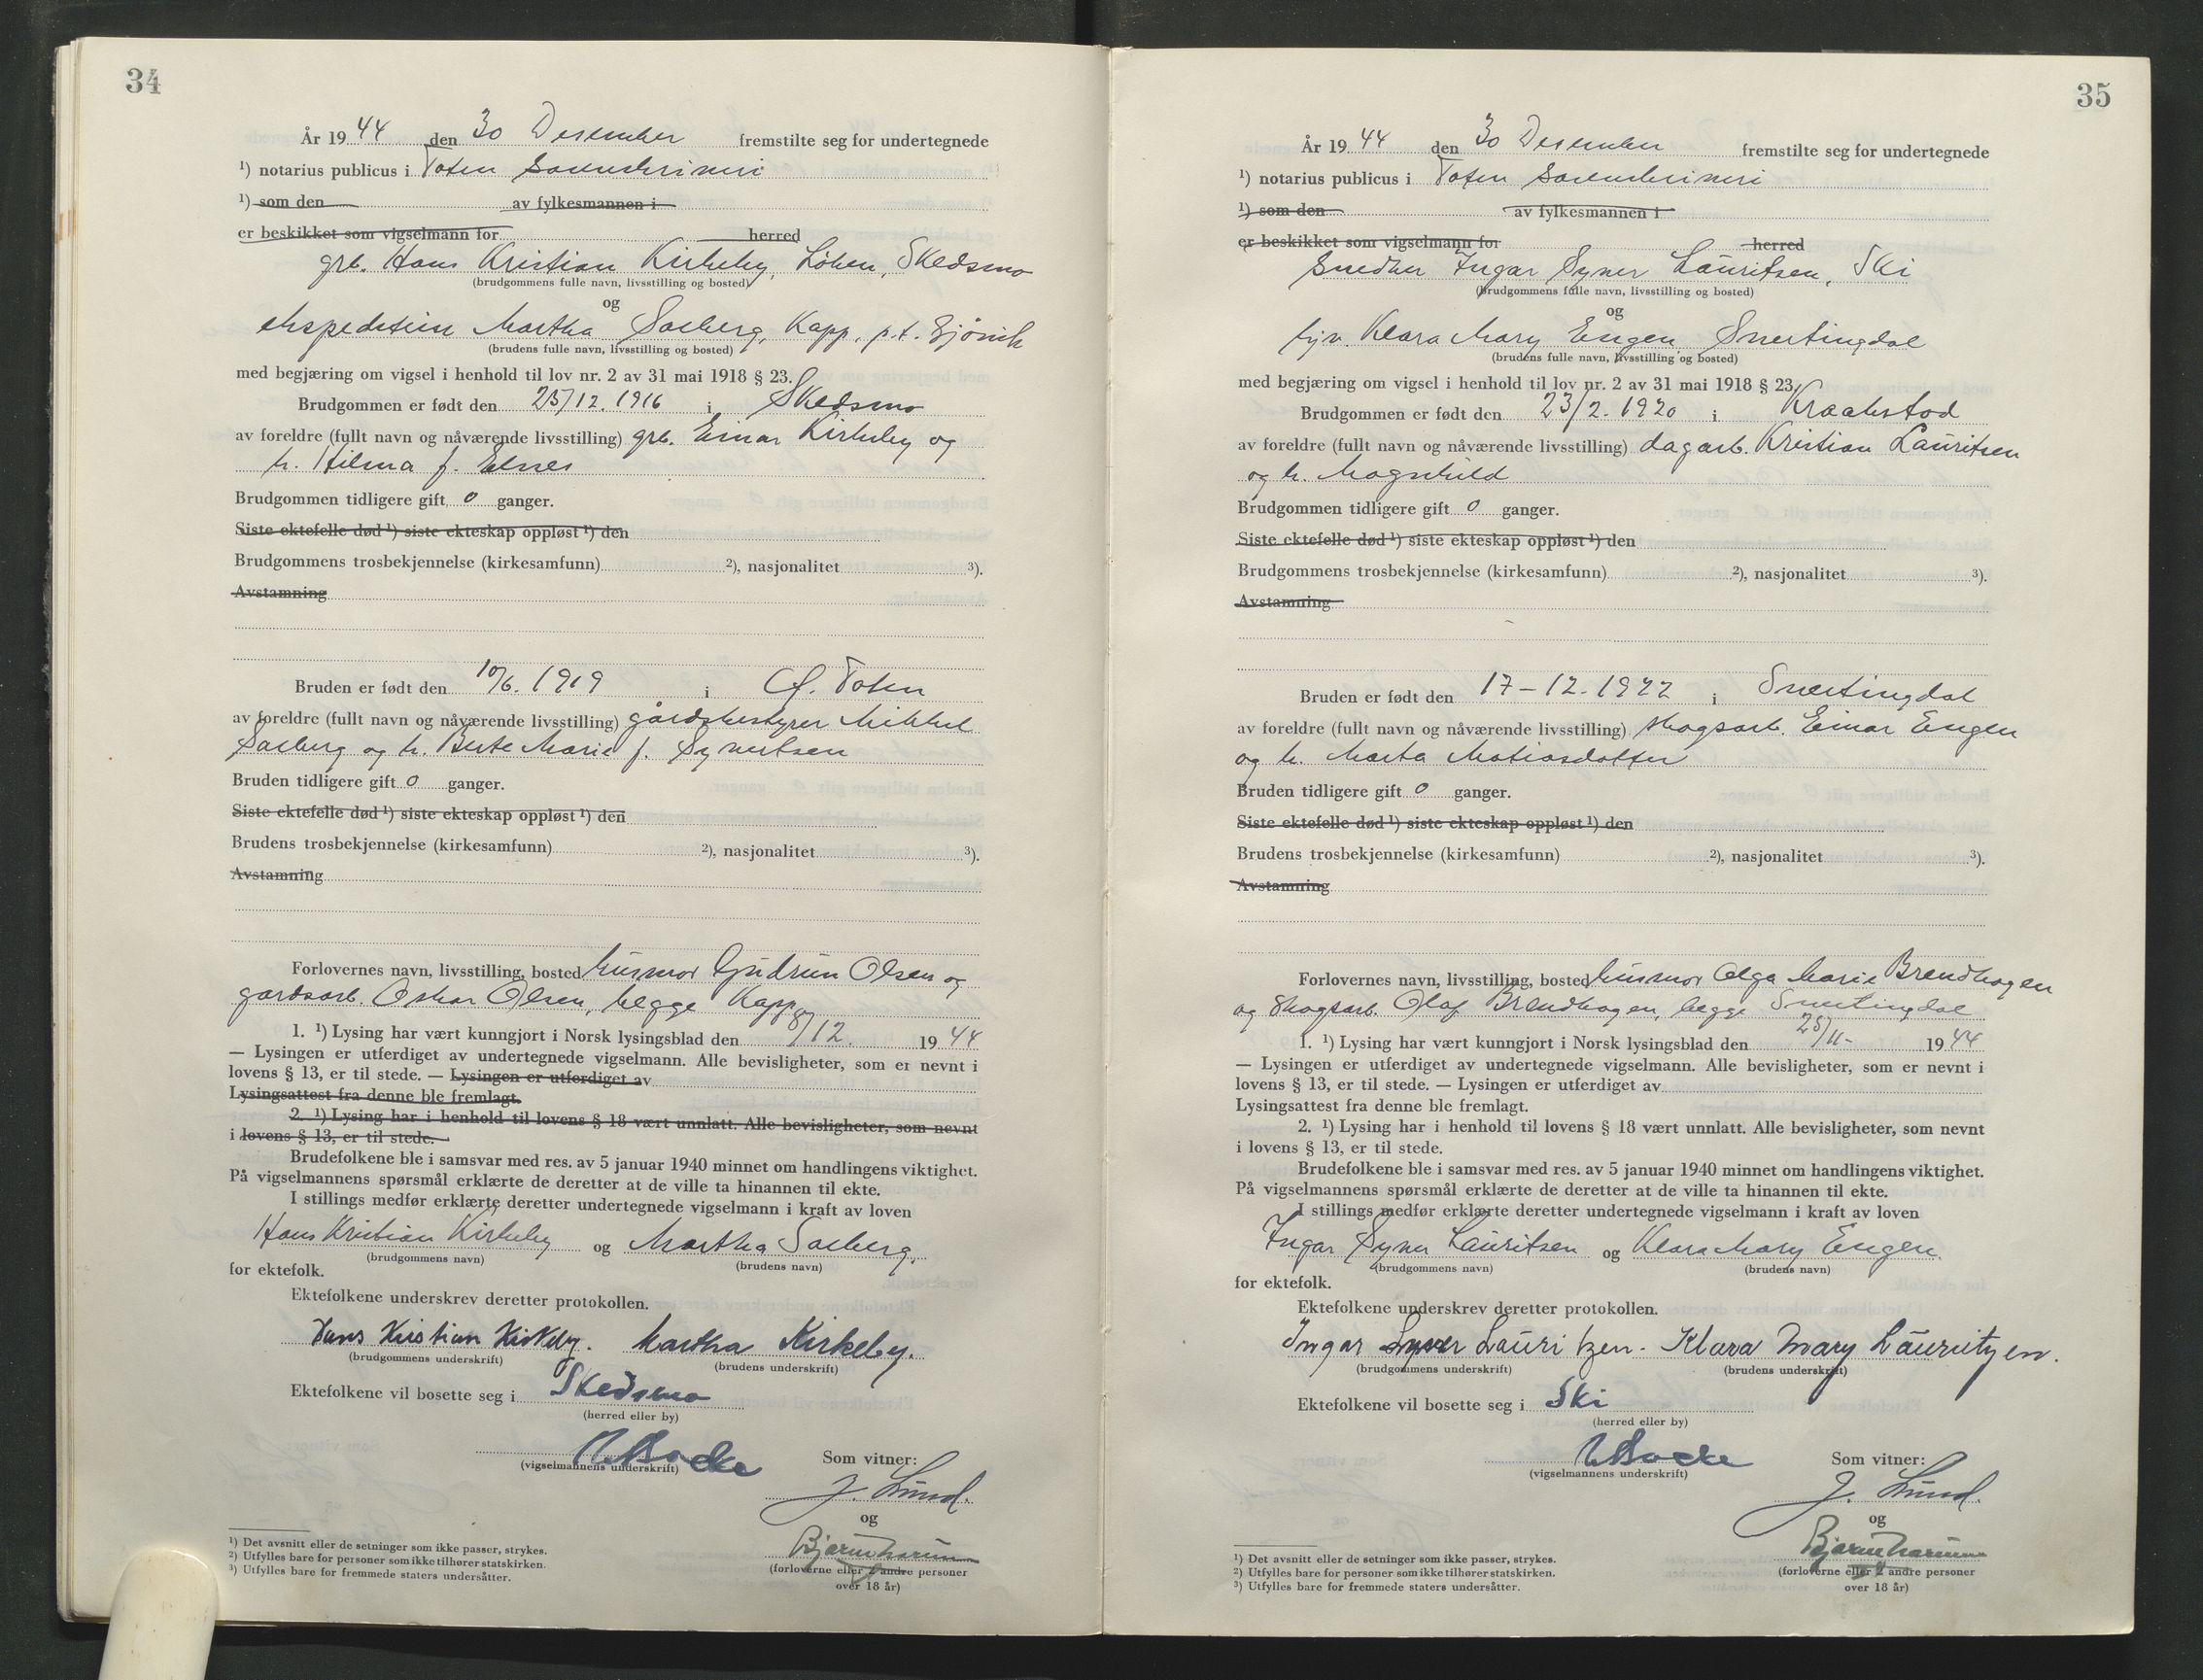 34
År 19 44 den 30 Desember fremstilte seg for undertegnede
¹) notarius publicus i Toten sorenskriveri
¹) som den av fylkesmannen i
er beskikket som vigselmann for herred
grb. Hans Kristian Kirkeby, Løken, Skedsmo
(brudgommens fulle navn, livsstilling og bosted)
og
ekspeditrise Martha Solberg, Kapp, p.t. Gjövik
(brudens fulle navn, livsstilling og bosted)
med begjæring om vigsel i henhold til lov nr. 2 av 31 mai 1918 § 23.
Brudgommen er født den 25/12. 1916 i Skedsmo
av foreldre (fullt navn og nåværende livsstilling) grb. Einar Kirkeby og
h. Hilma f.
Brudgommen tidligere gift 0 ganger.
Siste ektefelle død ¹) siste ekteskap oppløst ¹) den
Brudgommens trosbekjennelse (kirkesamfunn) ²), nasjonalitet ³).
Avstamning
Bruden er født den 10/6. 1919 i Ø. Toten
av foreldre (fullt navn og nåværende livsstilling) gårdsbestyrer Mikkel
Solberg og h. Berte Marie f. Syvertsen
Bruden tidligere gift 0 ganger.
Siste ektefelle død ¹) siste ekteskap oppløst ¹) den
Brudens trosbekjennelse (kirkesamfunn) ²), nasjonalitet ³).
Avstamning
Forlovernes navn, livsstilling, bosted husmor Gudrun Olsen og
gårdsarb. Oskar Olsen, begge Kapp
1. ¹) Lysing har vært kunngjort i Norsk lysingsblad den 8/12. 19 44
— Lysingen er utferdiget av undertegnede vigselmann. Alle bevisligheter, som er nevnt i
lovens § 13, er til stede. — Lysingen er utferdiget av
Lysingsattest fra denne ble fremlagt.
2. ¹) Lysing har i henhold til lovens § 18 vært unnlatt. Alle bevisligheter, som nevnt
i lovens § 13, er til stede.
Brudefolkene ble i samsvar med res. av 5 januar 1940 minnet om handlingens viktighet.
På vigselmannens spørsmål erklærte de deretter at de ville ta hinannen til ekte.
I stillings medfør erklærte deretter undertegnede vigselmann i kraft av loven
Hans Kristian Kirkeby og Martha Solberg
(brudgommens navn) (brudens navn)
for ektefolk.
Ektefolkene underskrev deretter protokollen.
Hans Kristian Kirkeby. Martha Kirkeby.
(brudgommens underskrift) (brudens underskrift)
Ektefolkene vil bosette seg i Skedsmo
(herred eller by)
(vigselmannens underskrift) Som vitner:
J. Lund.
og
(forloverne eller 2 andre personer
over 18 år)
¹) Det avsnitt eller de setninger som ikke passer, strykes.
²) Utfylles bare for personer som ikke tilhører statskirken.
³) Utfylles bare for fremmede staters undersåtter.
35
År 19 44 den 30 Desember fremstilte seg for undertegnede
¹) notarius publicus i Toten sorenskriveri
¹) som den av fylkesmannen i
er beskikket som vigselmann for herred
snedker Ingar Syver Lauritsen, Ski
(brudgommens fulle navn, livsstilling og bosted)
og
tjn. Klara Mary Engen, Snertingdal
(brudens fulle navn, livsstilling og bosted)
med begjæring om vigsel i henhold til lov nr. 2 av 31 mai 1918 § 23.
Brudgommen er født den 23/2. 1920 i Kraakstad
av foreldre (fullt navn og nåværende livsstilling) dagarb. Kristian Lauritsen
og h. Magnhild
Brudgommen tidligere gift 0 ganger.
Siste ektefelle død ¹) siste ekteskap oppløst ¹) den
Brudgommens trosbekjennelse (kirkesamfunn) ²), nasjonalitet ³).
Avstamning
Bruden er født den 17-12. 1922 i Snertingdal
av foreldre (fullt navn og nåværende livsstilling) skogsarb. Einar Engen
og h. Marta Matiasdatter
Bruden tidligere gift 0 ganger.
Siste ektefelle død ¹) siste ekteskap oppløst ¹) den
Brudens trosbekjennelse (kirkesamfunn) ²), nasjonalitet ³).
Avstamning
Forlovernes navn, livsstilling, bosted husmor Olga Marie Brendhagen
og skogsarb. Olaf Brendhagen, begge Snertingdal
1. ¹) Lysing har vært kunngjort i Norsk lysingsblad den 25/11- 19 44
— Lysingen er utferdiget av undertegnede vigselmann. Alle bevisligheter, som er nevnt i
lovens § 13, er til stede. — Lysingen er utferdiget av
Lysingsattest fra denne ble fremlagt.
2. ¹) Lysing har i henhold til lovens § 18 vært unnlatt. Alle bevisligheter, som nevnt
i lovens § 13, er til stede.
Brudefolkene ble i samsvar med res. av 5 januar 1940 minnet om handlingens viktighet.
På vigselmannens spørsmål erklærte de deretter at de ville ta hinannen til ekte.
I stillings medfør erklærte deretter undertegnede vigselmann i kraft av loven
Ingar Syver Lauritsen og Klara Mary Engen.
(brudgommens navn) (brudens navn)
for ektefolk.
Ektefolkene underskrev deretter protokollen.
Ingar Syver Lauritzen. Klara Mary Lauritzen.
(brudgommens underskrift) (brudens underskrift)
Ektefolkene vil bosette seg i Ski
(herred eller by)
(vigselmannens underskrift) Som vitner:
J. Lund.
og
(forloverne eller 2 andre personer
over 18 år)
¹) Det avsnitt eller de setninger som ikke passer, strykes.
²) Utfylles bare for personer som ikke tilhører statskirken.
³) Utfylles bare for fremmede staters undersåtter.